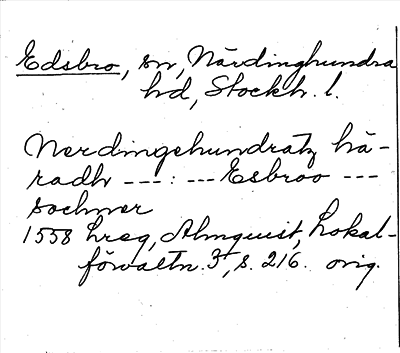 Edsbro, sn, Närdinghundra
hd, Stockh. l.
Nerdingehundratz hä-
radh ---:--- Esbroo ---
sochner
1558 hreg, Almquist, Lokal-
förvaltn. 3, s. 216. orig.